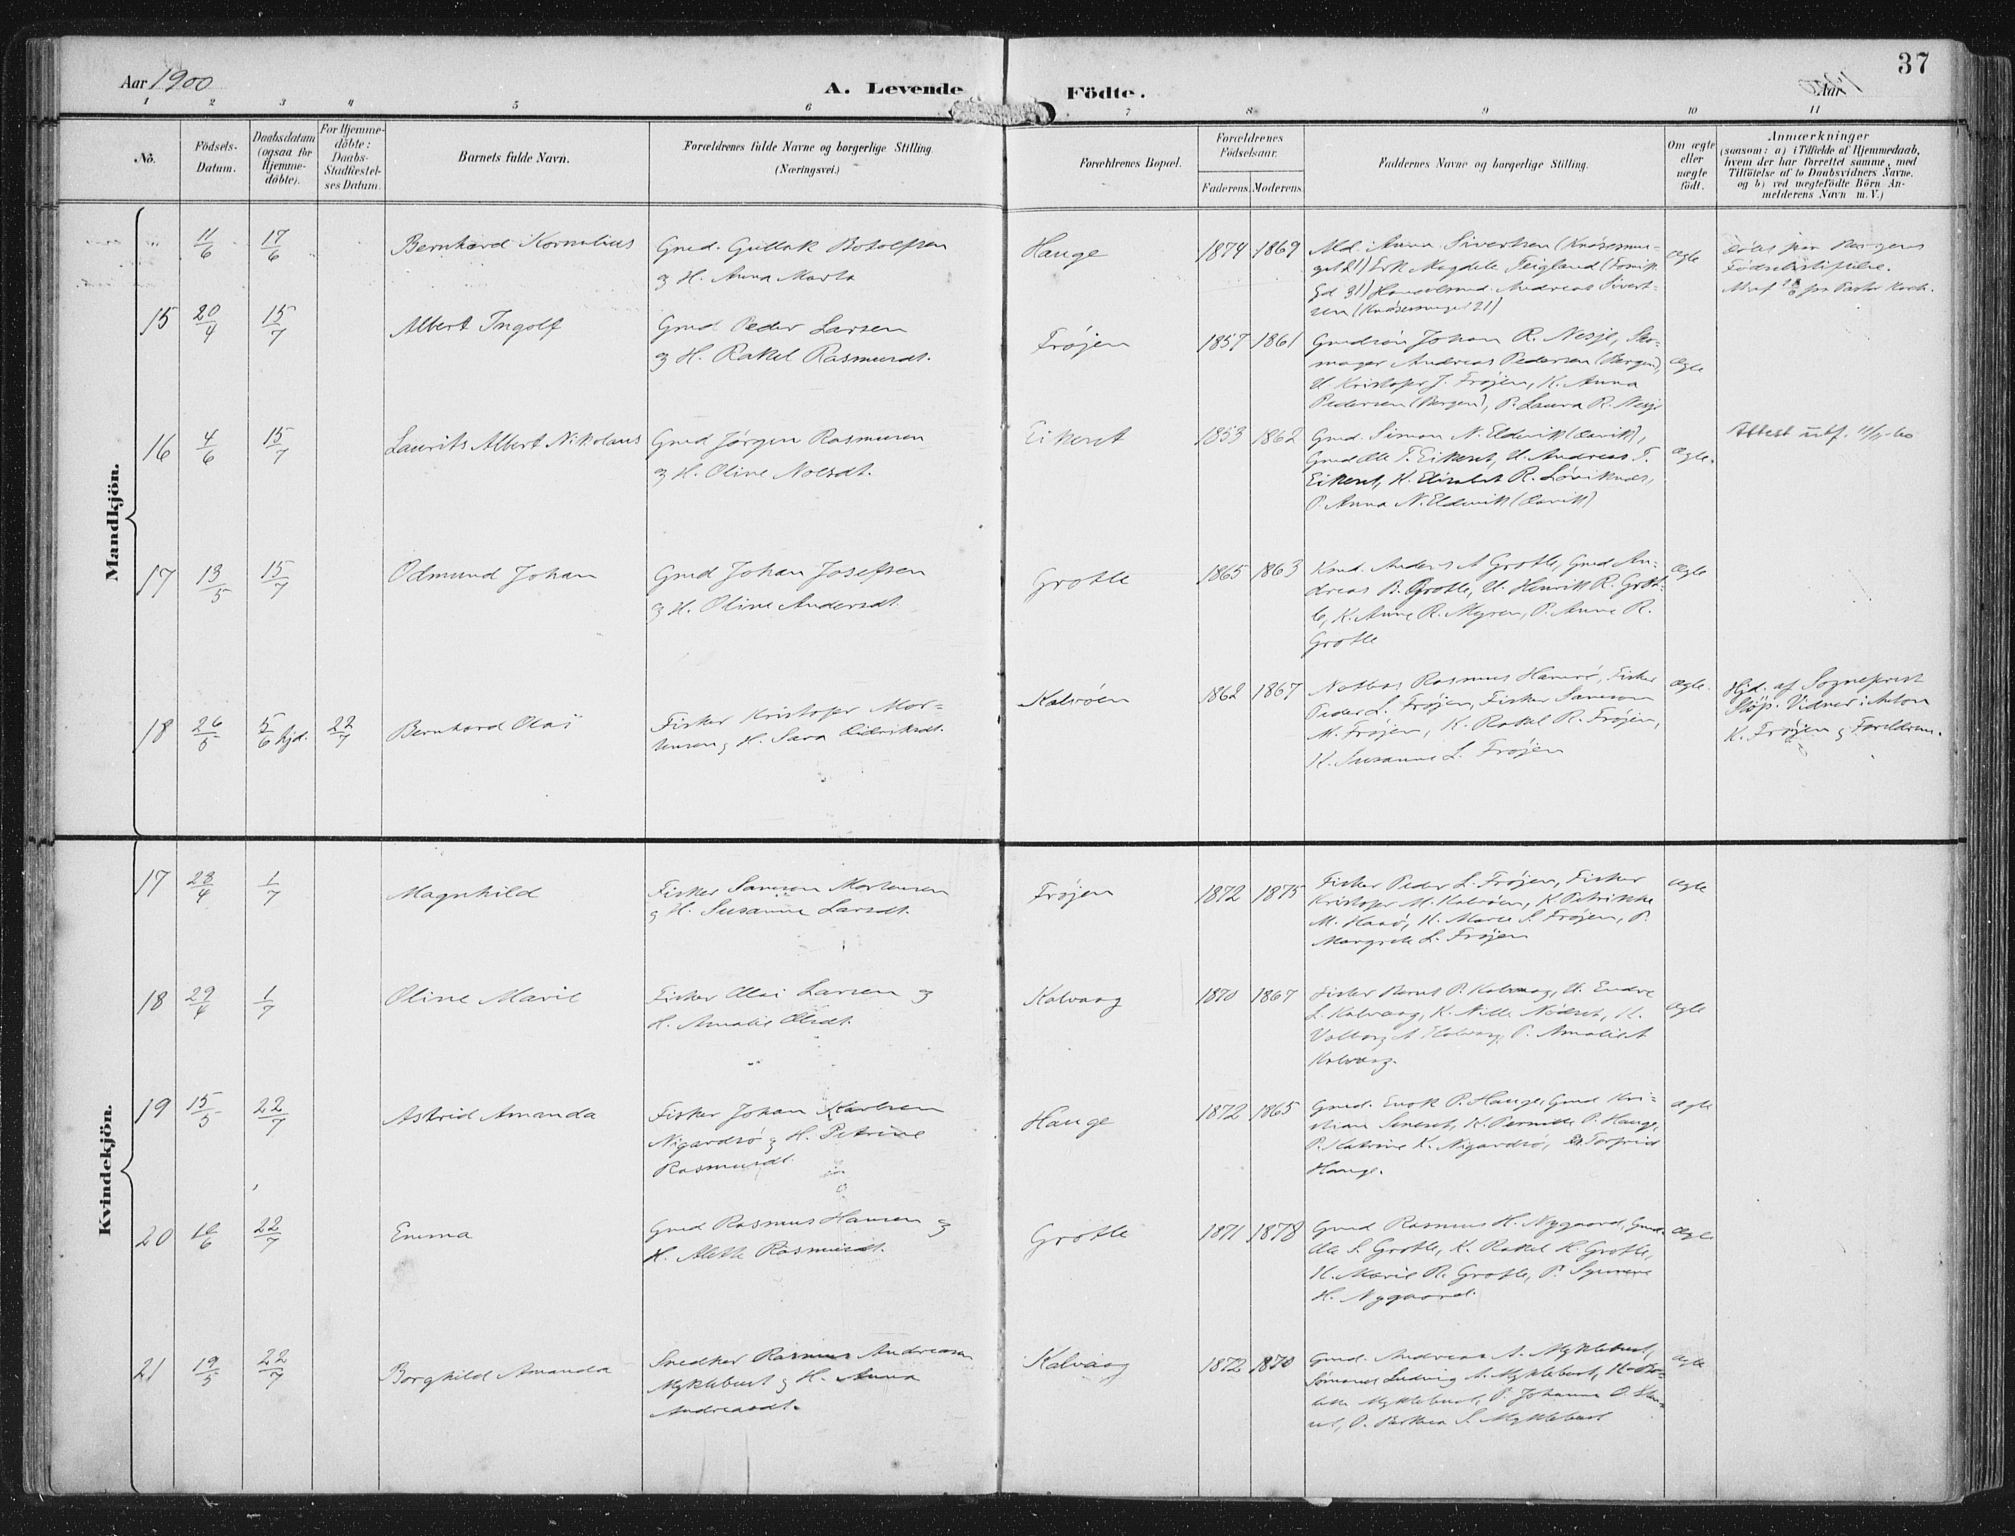 Aar 1900
A. Levende
Födte.
Aar
37
1 2 3 4 5 6 7 8 9 10 11
No.
Födsels-
Datum.
Daabsdatum
(ogsaa for
Hjemme-
döbte).
For Hjemme-
döbte:
Daabs-
Stadfæstel-
ses Datum.
Barnets fulde Navn.
Forældrenes fulde Navne og borgerlige Stilling.
(Næringsvei.)
Forældrenes Bopæl.
Forældrenes
Födselsaar.
Faderens. Moderens.
Faddernes Navne og borgerlige Stilling.
Om ægte
eller
uægte
födt.
Anmærkninger
(saasom: a) i Tilfælde af Hjemmedaab,
hvem der har forrettet samme, med
Tilföielse af to Daabsvidners Navne,
og b) ved uægtefödte Börn An-
melderens Navn m. V.)
Mandkjön.
11/6 17/6 Bernhard Kornelius
Gmd. Gullak Botolfsen
og H. Anna Marta
Hauge 1874 1869
Md. Anna Sivertsen (Knøsesmu-
get 21) Erk Magdele Teigland
Gd 31) Handelsmd. Andreas Sivert-
sen (Knøsesmuget 21)
Ægte
Födselsstiftelse.
15 20/4 15/7 Albert Ingolf
Gmd Peder Larsen
og H. Rakel Rasmusdt.
Frøjen 1857 1861
Gmdsøn Johan R. Nesje, Sko-
mager Andreas Pedersen (Bergen),
U Kristofer J. Frøjen, K. Anna
Pedersen (Bergen), P. Laura R. Nesje
Ægte
16 4/6 15/7 Laurits Albert Nikolaus
Gmd Jørgen Rasmusen
og H. Oline Nolsdt.
Eikeset 1853 1862
Gmd. Simon N. Eldevik (Davik),
Gmd Ole T. Eikeset, U. Andreas T.
Eikeset, K. Elisabet R. Løviknes,
P. Anna N. Eldevik (Davik)
Ægte.
Attest utf. 11/11-60
17 13/5 15/7 Odmund Johan
Gmd Johan Josefsen
og H. Oline Andersdt.
Grotle 1865 1863
Kmd. Anders A Grotle, Gmd An-
dreas B. Grotle, U. Henrik R. Grot-
le, K. Anne R. Myren, P. Anne R.
Grotle
Ægte
18 26/5 5/6 hjd. 22/7 Bernhard Olai
Fisker Kristofer Mor-
tensen og H. Sara Didriksdt.
Kalvöen 1862 1867
Notbas Rasmus Hamrö, Fisker
Peder L. Frøjen, Fisker Samson
M. Frøjen, K. Rakel R. Frøjen,
K. Susanne L. Frøjen
Ægte.
Hjd. af Sogneprest
Støp. Vidner: Anton
K. Frøjen og Forældrene.
Kvindekjön.
17 23/4 1/7 Magnhild
Fisker Samson Mortensen
og H. Susanne Larsdt.
Frøjen 1872 1875
Fisker Peder L. Frøjen, Fisker
Kristofer M. Kalvöen, K Petrikke
M. Haasö, K. Marie S. Frøjen, P.
Margrete L. Frøjen
Ægte
18 29/4 1/7 Oline Marie
Fisker Olai Larsen og
H. Amalie Olsdt.
Kalvaag 1870 1867
Fisker Bernt P. Kalvaag, U. Endre
L. Kalvaag, K. Nille Nødset, K.
Valborg A Kalvaag, P. Amalie A
Kalvaag.
Ægte
19 15/5 22/7 Astrid Amanda
Fisker Johan Karlsen
Nigardsö og H. Petrine
Rasmusdt.
Hauge 1872 1865
Gmd. Enok P. Hauge, Gmd Kri-
stian Seneset, K. Pernille P. Hauge,
P. Katrine K. Nigardsö, Torfrid
Hauge.
Ægte
20 16/6 22/7 Emma
Gmd Rasmus Hansen og
H. Alette Rasmusdt.
Grotle 1871 1878
Gmd Rasmus H. Nygaard, Gmd.
Ole S. Grotle, K. Rakel H. Grotle,
K. Marie R. Grotle, P. Synneve
H. Nygaard.
Ægte
21 19/5 22/7 Borghild Amanda
Snedker Rasmus Andreasen
Myklebust og H. Anna
Andreasdt.
Kalvaag 1872 1870
Gmd. Andreas A. Myklebust,
Sømand Ludvig A. Myklebust,
Myklebust, P. Johanne O.
P. S. Myklebust
Ægte